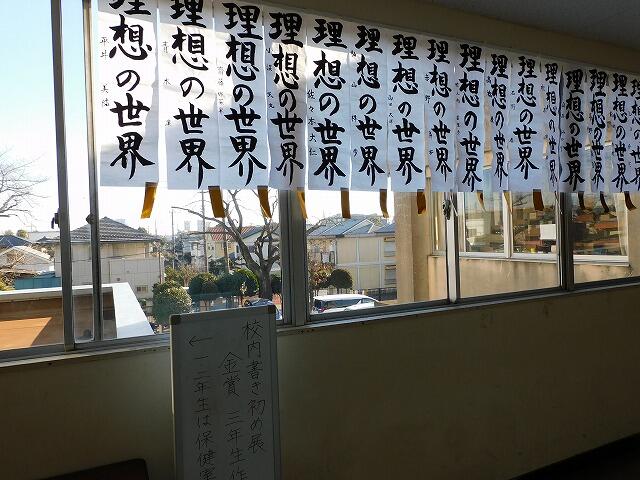 理想の世界
理想の世界
理想の世界
理想の世界
理想の世界
佐々木大仁
理想の世界
理想の世界
理想の世界
理想の世界
理想の世界
理想の世界
理想の世界
理想の世界
理想の世界
理想の世界
理想の世界
校内書き初め展
金賞 三年生作
←一二年生は保健室